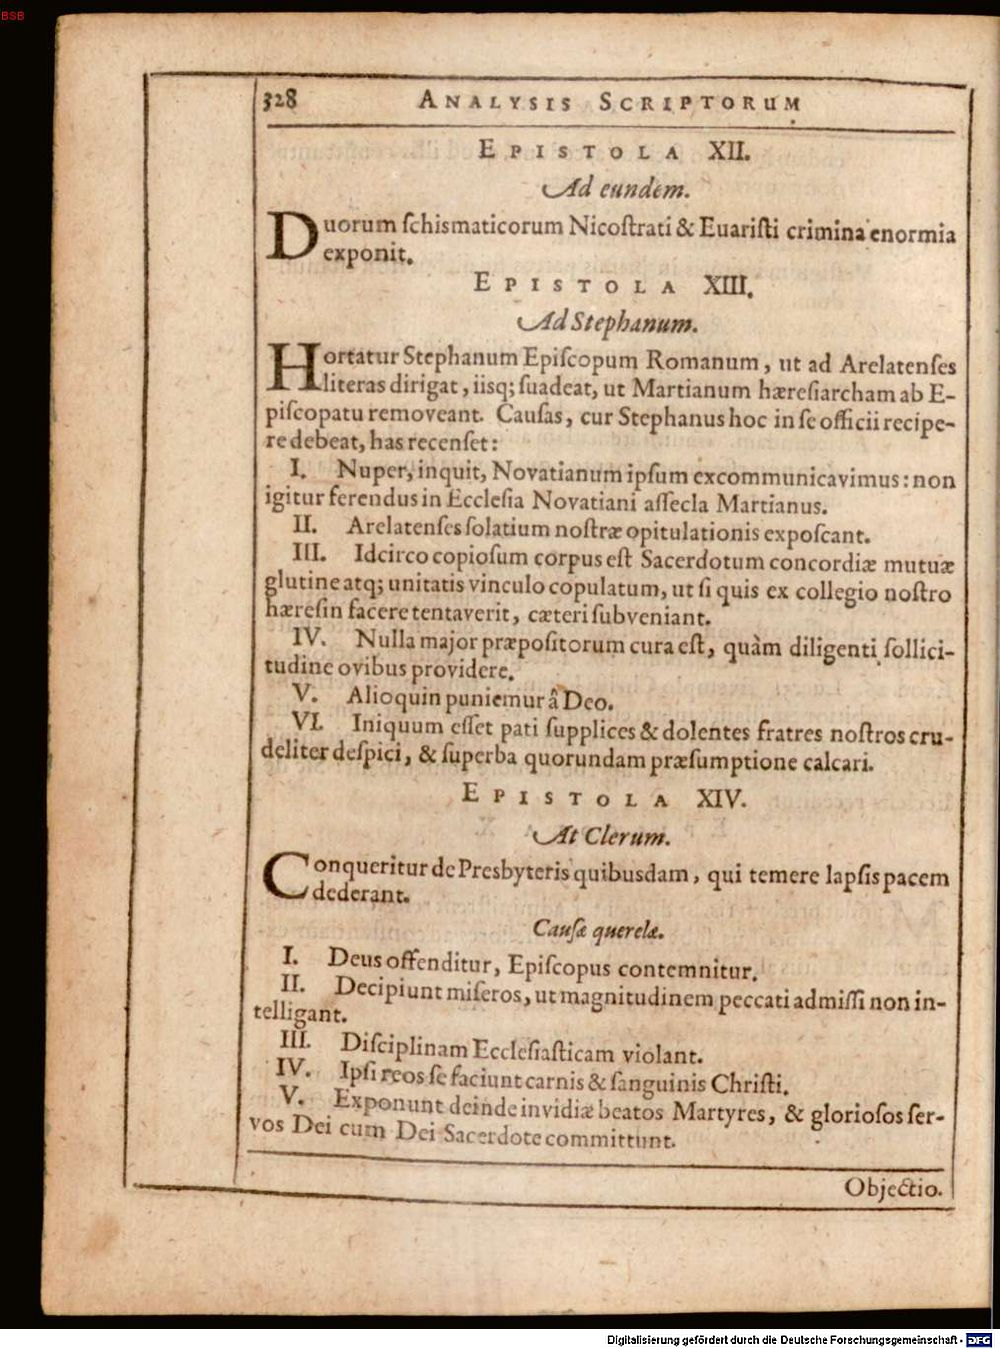 BSB
328 ANALYSIS SCRIPTORUM
EPISTOLA XII.
Ad eundem.
Duorum ſchismaticorum Nicoſtrati & Euariſti crimina enormia
exponit.
EPISTOLA XIII.
Ad Stephanum.
Hortatur Stephanum Epiſcopum Romanum, ut ad Arelatenſes
literas dirigat, iisq; ſuadeat, ut Martianum hæreſiarcham ab E-
piſcopatu removeant. Cauſas, cur Stephanus hoc in ſe officii recipe-
re debeat, has recenſet:
I. Nuper, inquit, Novatianum ipſum excommunicavimus: non
igitur ferendus in Eccleſia Novatiani aſſecla Martianus.
II. Arelatenſes ſolatium noſtræ opitulationis expoſcant.
III. Idcirco copioſum corpus eſt Sacerdotum concordiæ mutuæ
glutine atq; unitatis vinculo copulatum, ut ſi quis ex collegio noſtro
hæreſin facere tentaverit, cæteri ſubveniant.
IV. Nulla major præpoſitorum cura eſt, quàm diligenti ſollici-
tudine ovibus providere.
V. Alioquin puniemur â Deo.
VI. Iniquum eſſet pati ſupplices & dolentes fratres noſtros cru-
deliter deſpici, & ſuperba quorundam præſumptione calcari.
EPISTOLA XIV.
At Clerum.
Conqueritur de Presbyteris quibusdam, qui temere lapſis pacem
dederant.
Cauſæ querelæ.
I. Deus offenditur, Epiſcopus contemnitur.
II. Decipiunt miſeros, ut magnitudinem peccati admiſſi non in-
telligant.
III. Diſciplinam Eccleſiaſticam violant.
IV. Ipſi reos ſe faciunt carnis & ſanguinis Chriſti.
V. Exponunt deinde invidiæ beatos Martyres, & glorioſos ſer-
vos Dei cum Dei Sacerdote committunt.
Objectio.
Digitalisierung gefördert durch die Deutsche Forschungsgemeinschaft - DFG